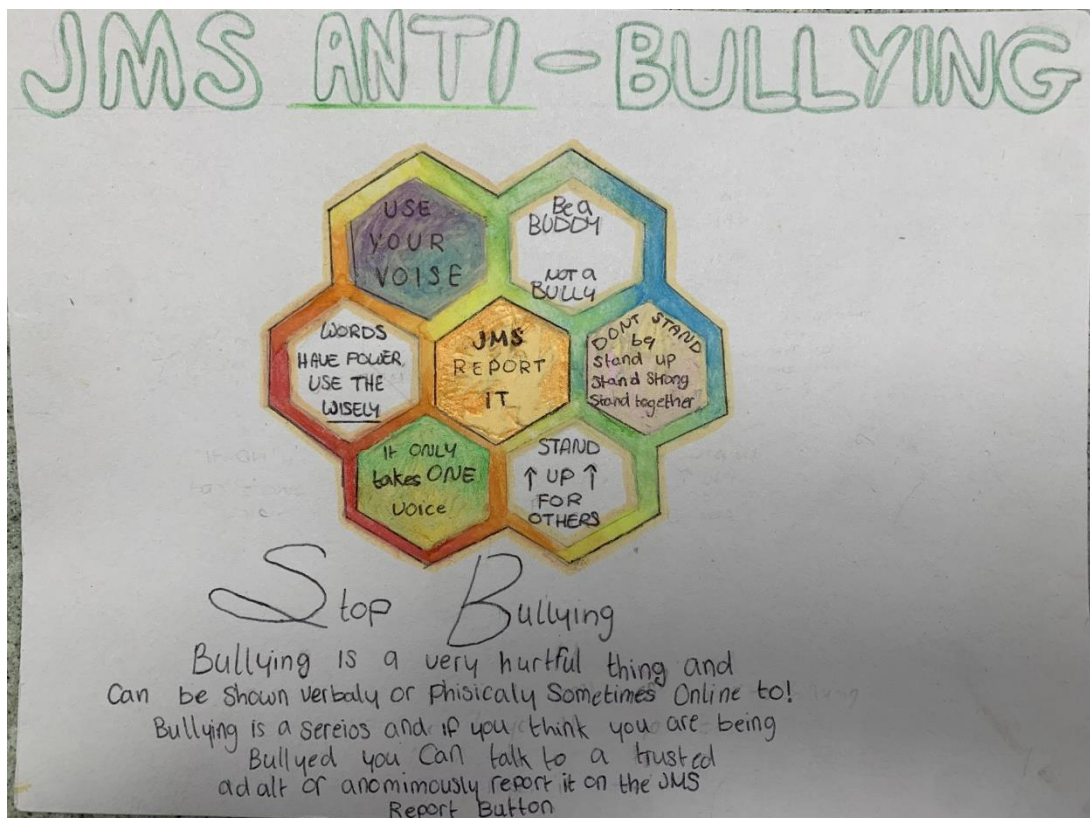 JMS ANTI-BULLYING
USE
YOUR
VOISE
Be a
BUDDY
NOT a
BULLY
WORDS
HAVE POWER
USE THE
WISELY
JMS
REPORT
IT
DONT STAND
by
Stand up
Stand Strong
Stand together
It ONLY
takes ONE
voice
STAND
↑ UP ↑
FOR
OTHERS
Stop Bullying
Bullying is a very hurtful thing and
Can be Shown verbaly or Phisicaly Sometimes Online to!
Bullying is a sereios and if you think you are being
Bullyed you Can talk to a trusted
adalt or anomimously report it on the JMS
Report Button